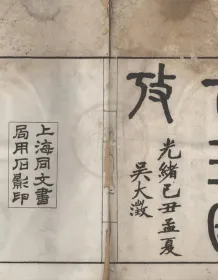 攷
光緒己丑孟夏
吳大澂
上海同文書
局用石影印